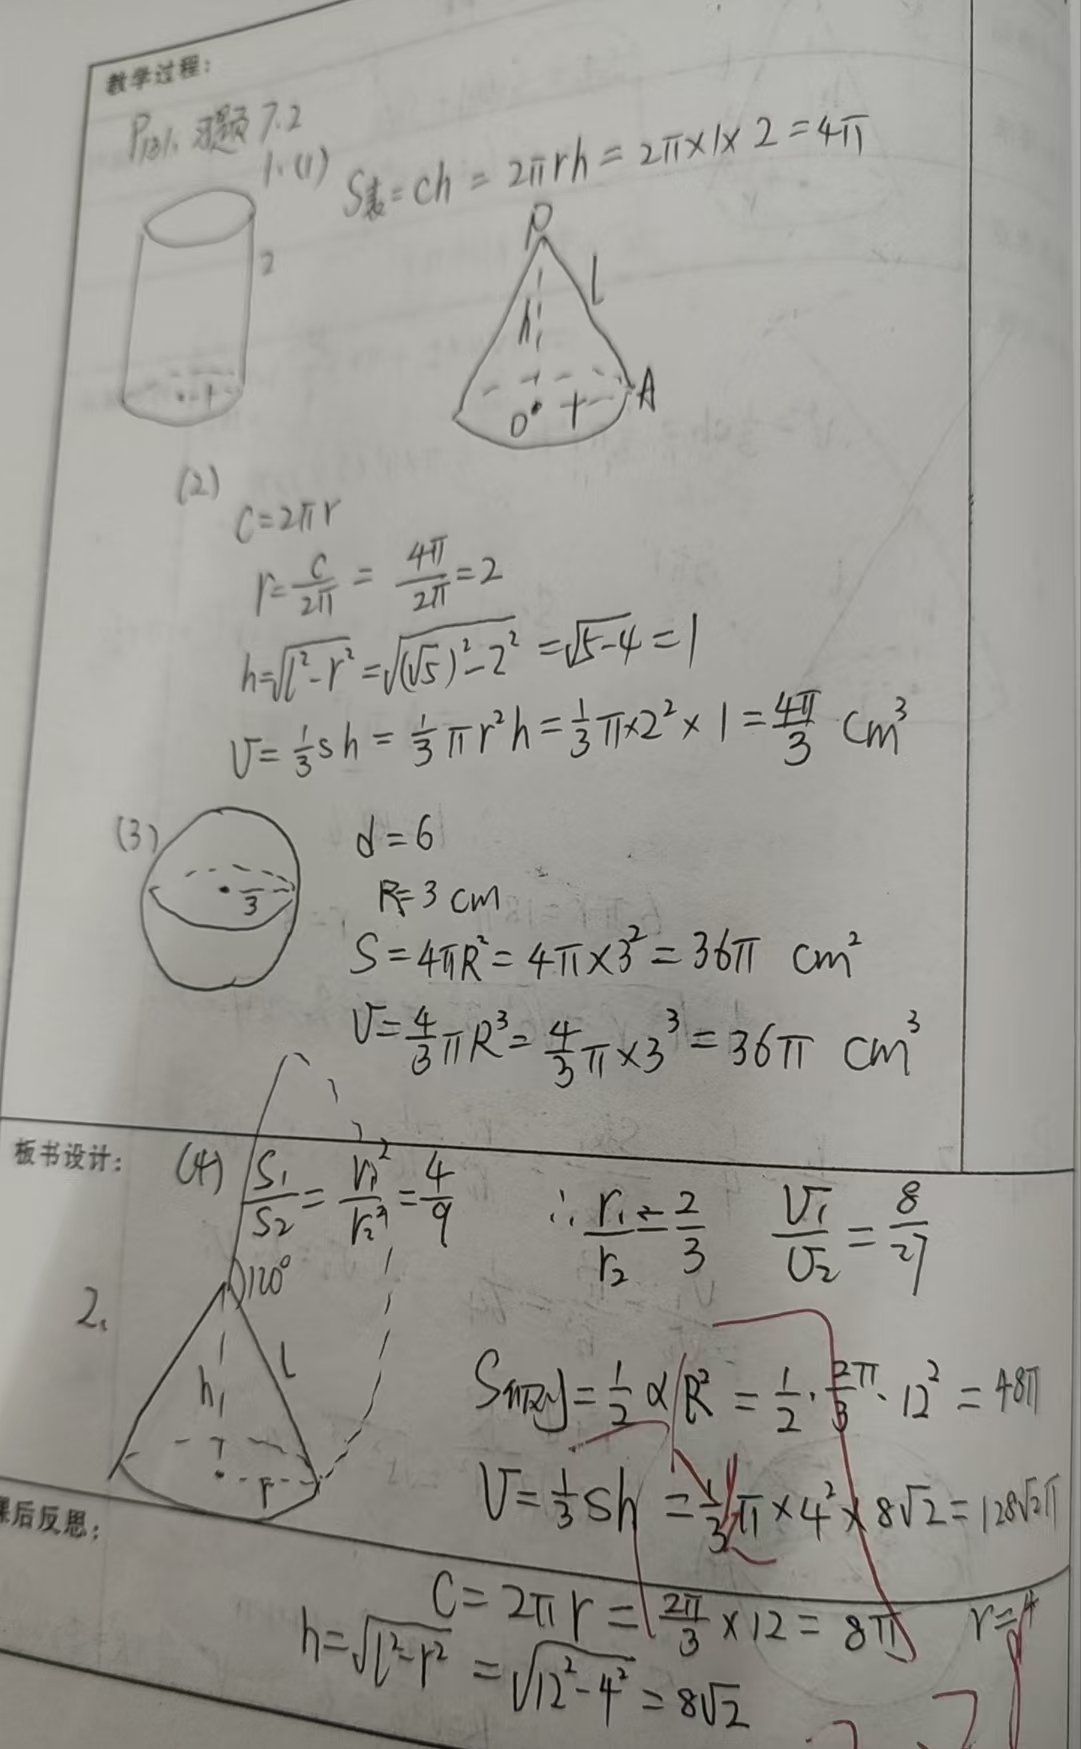 教学过程:
P131. 习题7.2
1.(1) S表=ch = 2πrh = 2π×1×2=4π
2
1
P
l
h
O r A
(2)
C=2πr
r=c/2π = 4π/2π=2
h=√(l²-r²)=√((√5)²-2²)=√(5-4)=1
V=1/3sh=1/3πr²h=1/3π×2²×1=4π/3 cm³
(3) d=6
3
R=3 cm
S=4πR²=4π×3²=36π cm²
V=4/3πR³=4/3π×3³=36π cm³
板书设计:
(4) S₁/S₂=r₁²/r₂²=4/9 ∴r₁/r₂=2/3 V₁/V₂=8/27
120°
2.
h l
r
=1/2αR²=1/2·2π/3·12²=48π
V=1/3sh=1/3π×4²×8√2=128√2π
课后反思:
C=2πr=2π/3×12=8π r=4
h=√(l²-r²)=√(12²-4²)=8√2